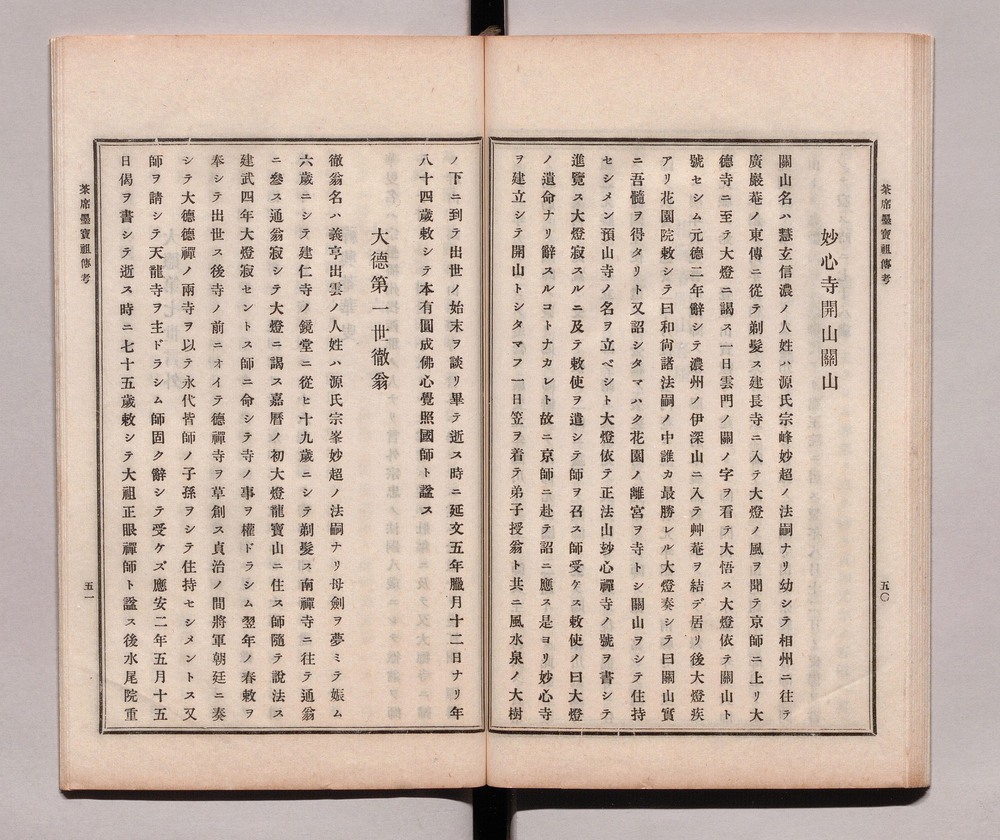 茶席墨寳祖傳考
妙心寺開山關山
關山名ハ慧玄信濃ノ人姓ハ源氏宗峰妙超ノ法嗣ナリ幼シテ相州ニ往テ
廣嚴菴ノ東傳ニ從テ剃髮ス建長寺ニ入テ大燈ノ風ヲ聞テ京師ニ上リ大
德寺ニ至テ大燈ニ謁ス一日雲門ノ關ノ字ヲ看テ大悟ス大燈依テ關山ト
號セシム元德二年辭シテ濃州ノ伊深山ニ入テ艸菴ヲ結デ居リ後大燈疾
アリ花園院敕シテ曰和尙諸法嗣ノ中誰カ最勝レル大燈奏シテ曰關山實
ニ吾髓ヲ得タリト又詔シタマハク花園ノ離宮ヲ寺トシ關山ヲシテ住持
セシメン預山寺ノ名ヲ立ベシト大燈依テ正法山妙心禪寺ノ號ヲ書シテ
進覽ス大燈寂スルニ及テ敕使ヲ遣シテ師ヲ召ス師受ケス敕使ノ曰大燈
ノ遺命ナリ辭スルコトナカレト故ニ京師ニ赴テ詔ニ應ス是ヨリ妙心寺
ヲ建立シテ開山トシタマフ一日笠ヲ着テ弟子授翁ト共ニ風水泉ノ大樹
五〇
ノ下ニ到テ出世ノ始末ヲ談リ畢テ逝ス時ニ延文五年臘月十二日ナリ年
八十四歲敕シテ本有圓成佛心覺照國師ト諡ス
大德第一世徹翁
徹翁名ハ義亨出雲ノ人姓ハ源氏宗峯妙超ノ法嗣ナリ母劍ヲ夢ミテ娠ム
六歲ニシテ建仁寺ノ鏡堂ニ從ヒ十九歲ニシテ剃髮ス南禪寺ニ往テ通翁
ニ參ス通翁寂シテ大燈ニ謁ス嘉曆ノ初大燈龍寶山ニ住ス師隨テ說法ス
建武四年大燈寂セントス師ニ命シテ寺ノ事ヲ權ドラシム翌年ノ春敕ヲ
奉シテ出世ス後寺ノ前ニオイテ德禪寺ヲ草創ス貞治ノ間將軍朝廷ニ奏
シテ大德德禪ノ兩寺ヲ以テ永代皆師ノ子孫ヲシテ住持セシメントス又
師ヲ請シテ天龍寺ヲ主ドラシム師固ク辭シテ受ケズ應安二年五月十五
日偈ヲ書シテ逝ス時ニ七十五歲敕シテ大祖正眼禪師ト諡ス後水尾院重
茶席墨寳祖傳考
五一